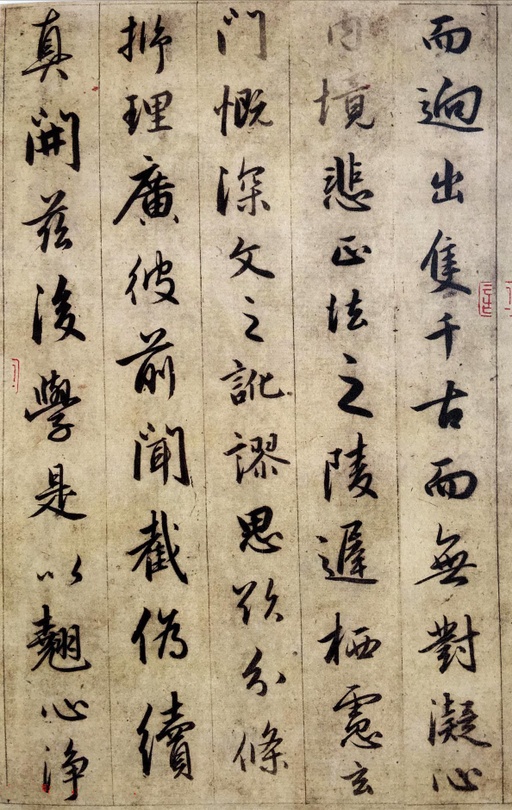 而逈出隻千古而無對凝心
内境悲正法之陵遲栖慮玄
門慨深文之訛謬思欲分條
㭊理廣彼前聞截偽續
真開兹後學是以翹心淨